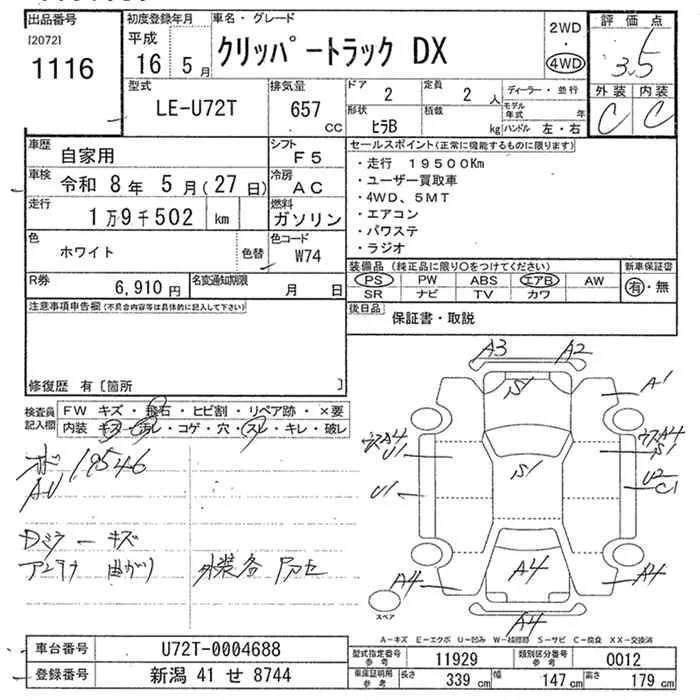 出品番号
[2072]
1116
初度登録年月
平成
16 5月
車名・グレード
クリッパートラック DX
2WD
・
4WD
評価点
3.5
外装 内装
C C
型式
LE-U72T
排気量
657
CC
ドア
2
定員
2 人
形状
ヒラB
積載
kg
ディーラー・並行
モデル年式 年
ハンドル 左・右
車歴
自家用
シフト
F5
車検
令和 8年 5月(27日)
冷房
AC
走行
1万9千502 km
燃料
ガソリン
色
ホワイト
色替
色コード
W74
R券
6,910円
名変通知期限
月 日
セールスポイント(正常に機能するものに限ります)
・走行 19500Km
・ユーザー買取車
・4WD、5MT
・エアコン
・パワステ
・ラジオ
装備品(純正品に限り○をつけてください)
PS PW ABS エアB AW
SR ナビ TV カワ
新車保証書
有・無
後日品
保証書・取説
注意事項申告欄(不具合内容等は具体的に記入して下さい)
修復歴 有〔箇所 〕
検査員記入欄
FW キズ・飛石・ヒビ割・リペア跡・×要
内装 キズ・汚レ・コゲ・穴・スレ・キレ・破レ
19546
Dミラーキズ
アンテナ 曲がり
A3 A2
S1
A1
ウスA4
U1
ウスA4
S1
S1
U1
U2
C1
A4
A4
A4
A4
スペア
A-キズ E-エクボ U-凹み W-補修跡 S-サビ C-腐食 XX-交換済
車台番号
U72T-0004688
登録番号
新潟 41 せ 8744
型式指定番号
参考
11929
類別区分番号
参考
0012
車庫証明用
参考
長さ 339 cm 幅 147 cm 高さ 179 cm